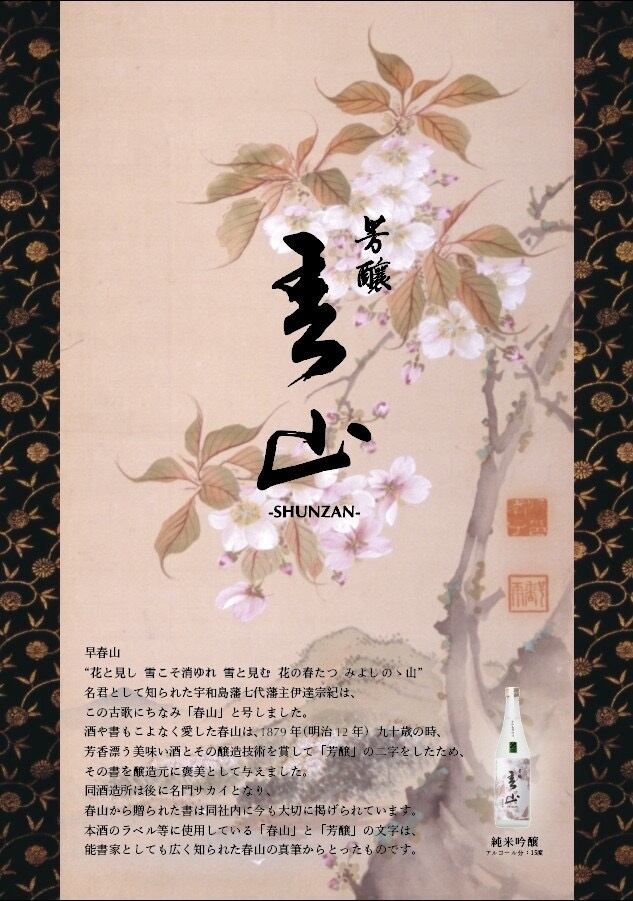 芳醸
春山
-SHUNZAN-
早春山
“花と見し 雪こそ消ゆれ 雪と見む 花の春たつ みよしのゝ山”
名君として知られた宇和島藩七代藩主伊達宗紀は、
この古歌にちなみ「春山」と号しました。
酒や書もこよなく愛した春山は、1879年（明治12年）九十歳の時、
芳香漂う美味い酒とその醸造技術を賞して「芳醸」の二字をしたため、
その書を醸造元に褒美として与えました。
同酒造所は後に名門サカイとなり、
春山から贈られた書は同社内に今も大切に掲げられています。
本酒のラベル等に使用している「春山」と「芳醸」の文字は、
能書家としても広く知られた春山の真筆からとったものです。
春山
純米吟醸
アルコール分：15度